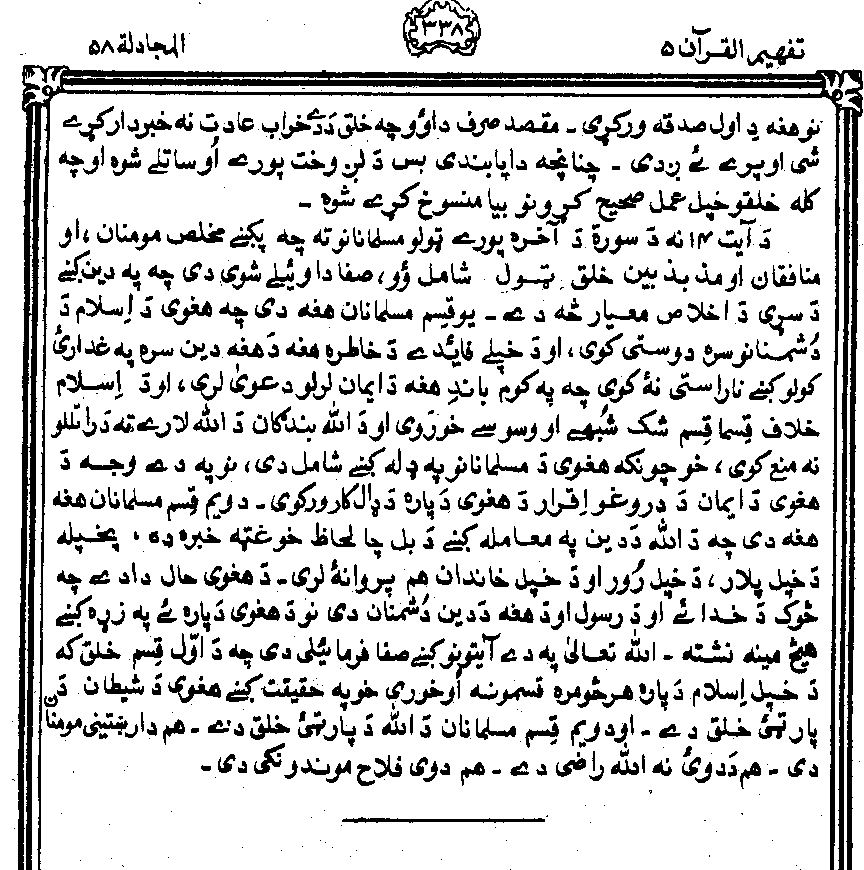 تفهيم القرآن ۵
۳۳۸
المجادلة ۵۸
نو هغه دِ اول صدقه ورکړي ۔ مقصد صرف دا وُو چه خلق دَ دے خراب عادت نه خبردار کړے
شي او پرے ئے ږدي ۔ چنانچه دا پابندي بس دَ لږ وخت پورے اُوساتلے شوه او چه
کله خلقو خپل عمل صحيح کړو نو بيا منسوخ کړے شوه ۔
دَ آيت ۱۴ نه دَ سورة دَ آخره پورے ټولو مسلمانانو ته چه پکښے مخلص مومنان ، او
منافقان او مذبذبين خلق ټول شامل وُو ، صفا دا وئيلے شوي دي چه په دين کښے
دَ سړي دَ اخلاص معيار څه دے ۔ يو قِسم مسلمانان هغه دي چه هغوي دَ اِسلام دَ
دُشمنانو سره دوستي کوي ، او دَ خپلے فائدے دَ خاطره هغه دَ هغه دين سره په غدارئ
کولو کښے ناراستي نۀ کوي چه په کوم باندِ هغه دَ ايمان لرلو دعویٰ لري ، او دَ اِسلام
خلاف قِسما قِسم شک شُبهے او وسوسے خوروي او دَ الله بندګان دَ الله لارے ته دَ راتللو
نه منع کوي ، خو چونکه هغوي دَ مسلمانانو په ډله کښے شامل دي ، نو په دے وجه دَ
هغوي دَ ايمان دَ دروغو اِقرار دَ هغوي دَپاره دَ ډال کار ورکوي ۔ دويم قِسم مسلمانان هغه
هغه دي چه دَ الله دَ دين په معامله کښے دَ بل چا لحاظ خو غټه خبره ده ، پخپله
دَ خپل پلار ، دَ خپل رُور او دَ خپل خاندان هم پروا نۀ لري ۔ دَ هغوي حال دا دے چه
څوک دَ خدائے او دَ رسول او دَ هغه دَ دين دُشمنان دي نو دَ هغوي دَپاره ئے په زړه کښے
هيڅ مينه نشته ۔ الله تعالیٰ په دے آيتونو کښے صفا فرمائيلي دي چه دَ اوّل قِسم خلق که
دَ خپل اِسلام دَپاره هر څومره قسمونه اُوخوري خو په حقيقت کښے هغوي دَ شيطان دَ
پارټئ خلق دے ۔ او دويم قِسم مسلمانان دَ الله دَ پارټئ خلق دے ۔ هم دا رښتيني مومنان
دي ۔ هم دَ دوئ نه الله راضي دے ۔ هم دوي فلاح موندونکي دي ۔